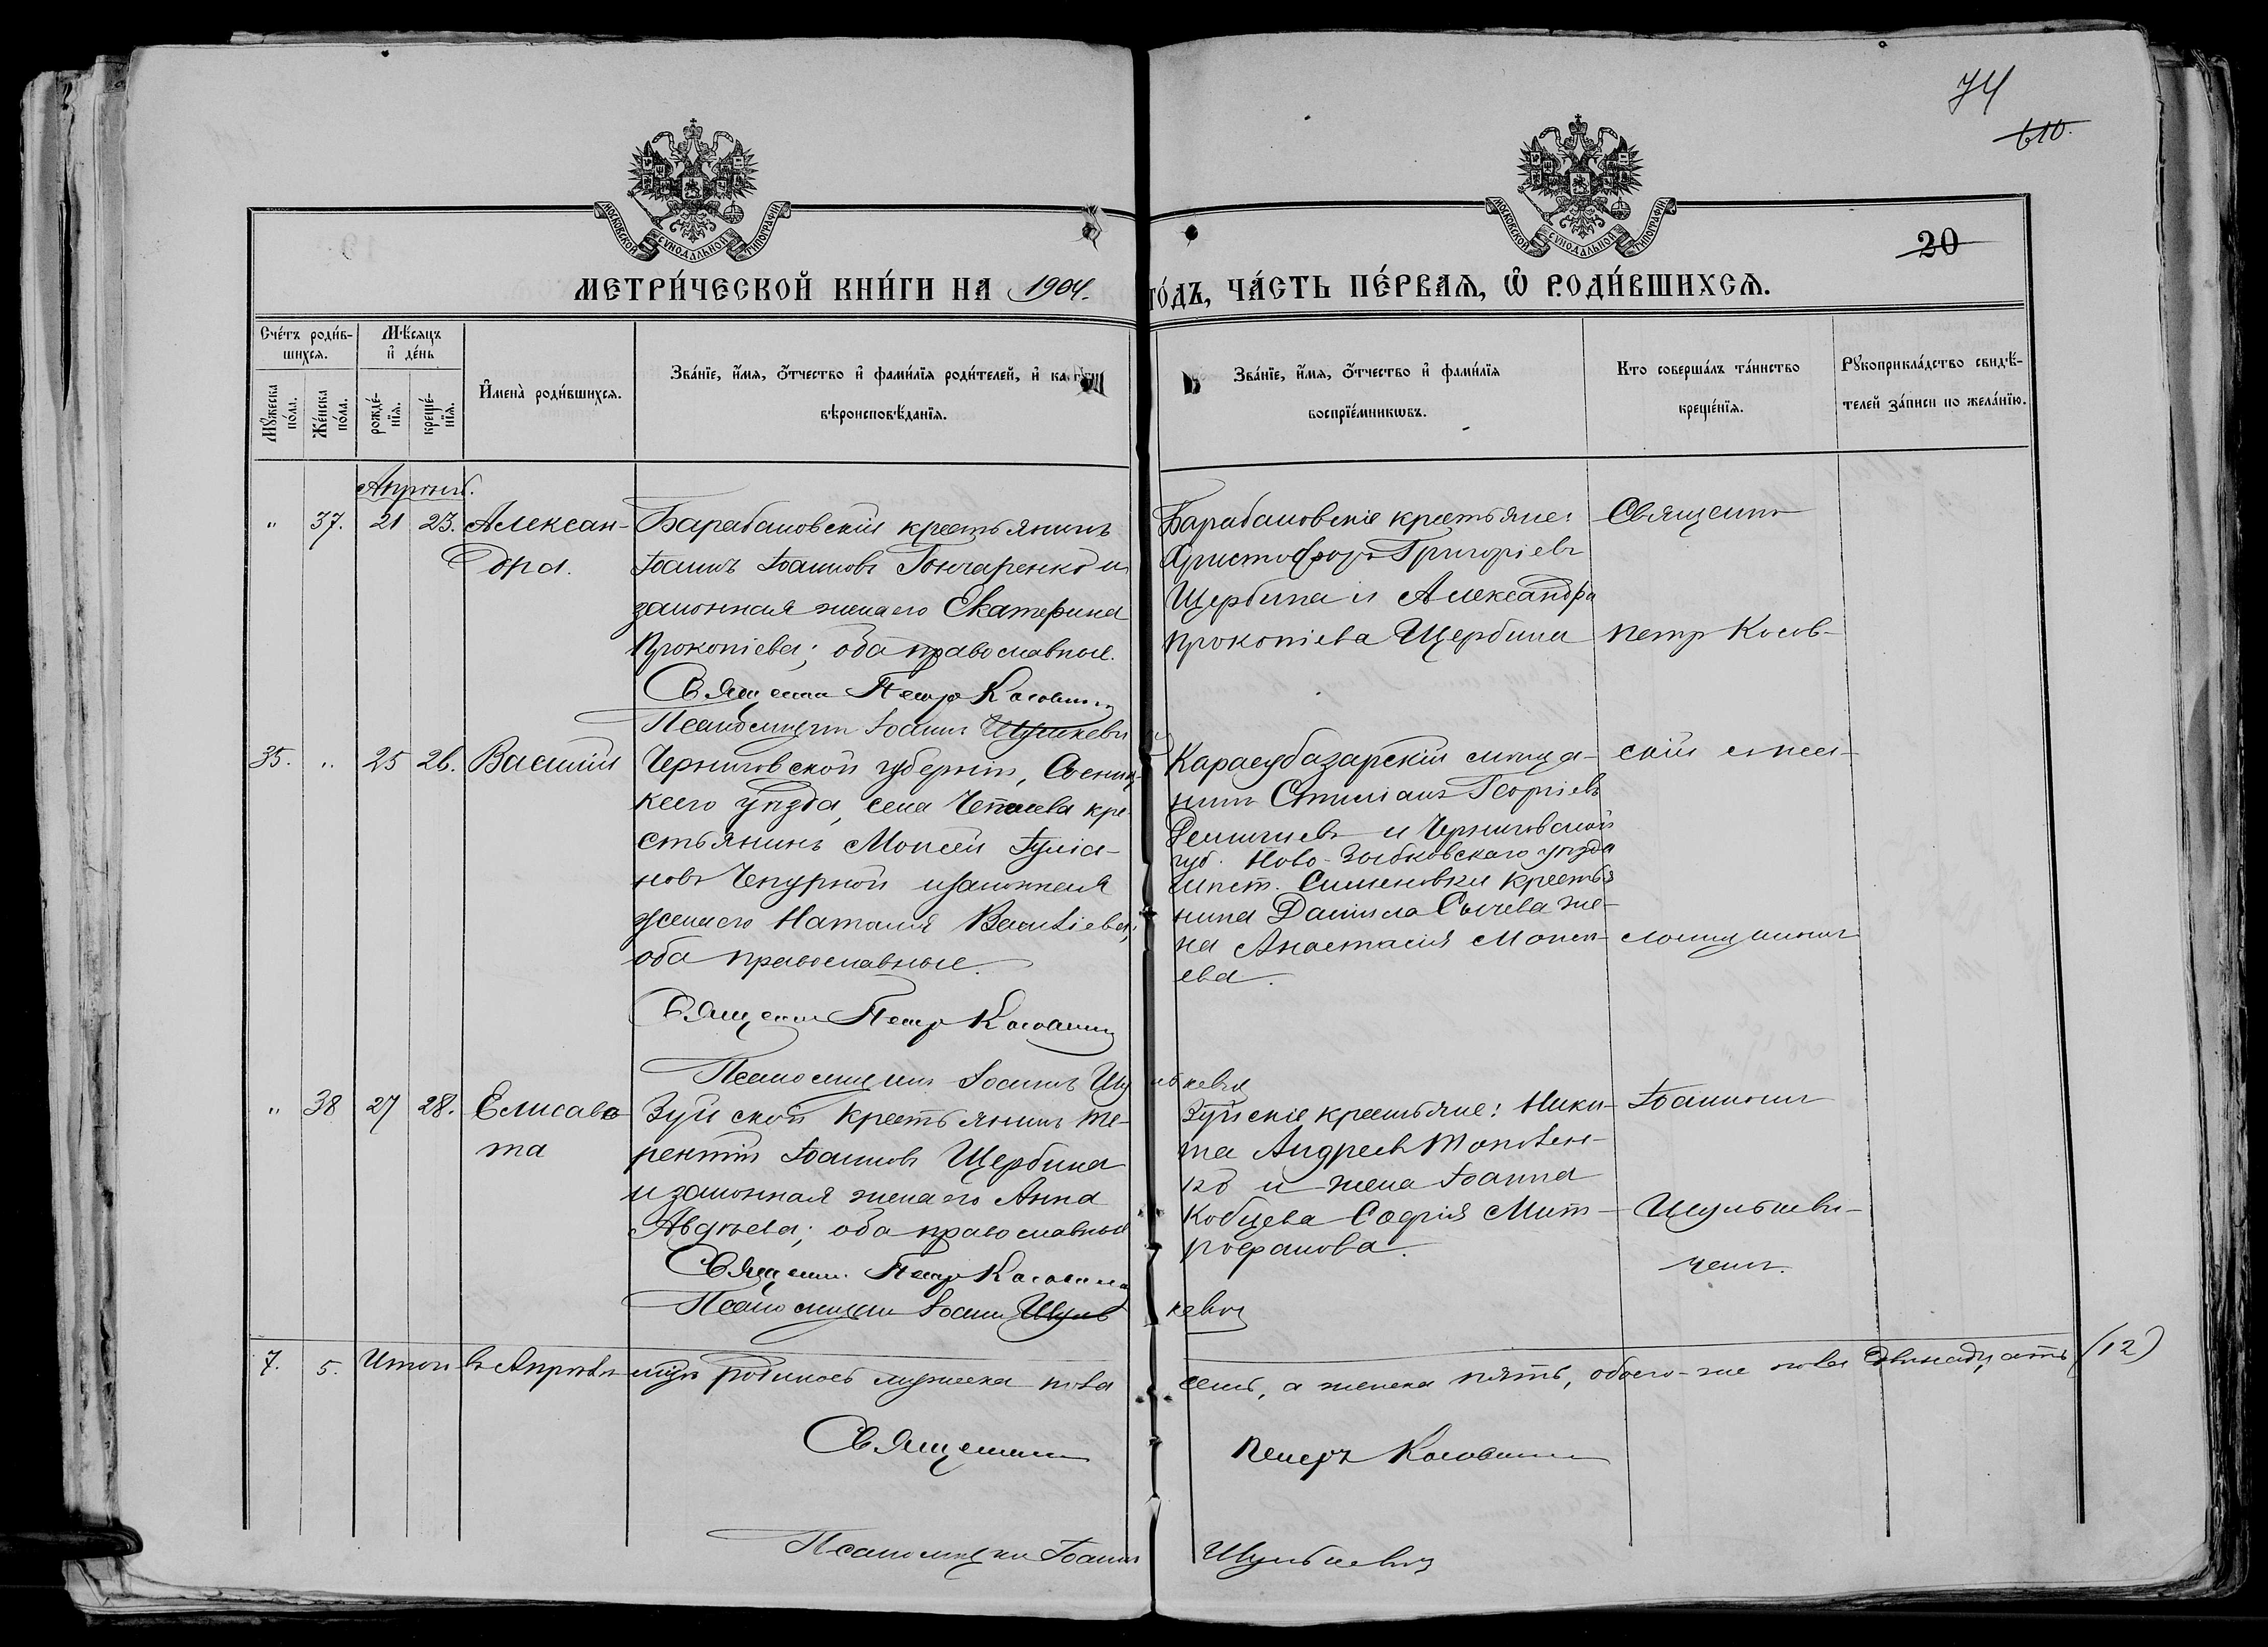 74
610.
20
МОСКОВСКОЙ СѴНОДАЛЬНОЙ ТИПОГРАФІИ
МОСКОВСКОЙ СѴНОДАЛЬНОЙ ТИПОГРАФІИ
МЕТРИ́ЧЕСКОЙ КНИ́ГИ НА 1904. ГО́ДЪ, ЧА́СТЬ ПЕ́РВАѦ, Ѽ РОДИ́ВШИХСѦ.
Сче́тъ роди́в-
шихсѧ.
Мꙋ́жеска по́ла.
Же́нска по́ла.
Мѣ́сѧцъ и҆ де́нь
рожде́-нїѧ.
креще́-нїѧ.
И҆мена̀ роди́вшихсѧ.
Зва́нїе, и҆́мѧ, ѻ҆́тчество и҆ фами́лїѧ роди́телей, и҆
вѣроисповѣ́данїѧ.
Зва́нїе, и҆́мѧ, ѻ҆́тчество и҆ фами́лїѧ
воспрїе́мникѡвъ.
Кто соверша́лъ та́инство
креще́нїѧ.
Рꙋкоприкла́дство свидѣ́-
телей за́писи по жела́нїю.
Апрѣль.
" 37. 21 23. Алексан-
дра.
Барабановскій крестьянинъ
Іоаннъ Іоанновъ Гончаренко и
законная жена его Екатерина
Прокопіева; оба православные.
Священникъ Петръ Косовскій
Псаломщикъ Іоаннъ Шулькевичъ
Барабановскіе крестьяне:
Христофоръ Григоріевъ
Щербина и Александра
Прокопіева Щербина
Священникъ
Петръ Косов-
35. " 25 26. Василій
Черниговской губерніи, Сосниц-
каго уѣзда, села крe-
стьянинъ Моисей Іуліа-
новъ Чепурной и законная
жена его Наталія Васильева;
оба православные.
Священникъ Петръ Косовскій
Псаломщикъ Іоаннъ Шулькевичъ
Карасубазарскій мѣща-
нинъ Стиліанъ Георгіевъ
и Черниговской
губ. Ново-Зыбковскаго уѣзда
мѣст. Семеновки крестья
нина Даніила Сычева же-
на Анастасія Моисе-
ева.
скій съ пса-
ломщикомъ
" 38 27 28. Елисаве-
та
Зуйской крестьянинъ Те-
рентій Іоанновъ Щербина
и законная жена его Анна
Авдѣева; оба православные
Священникъ Петръ Косовскій
Псаломщикъ Іоаннъ Шулькевичъ
Зуйскіе крестьяне: Ники-
та Андреевъ
ко и жена Іоанна
Кобцева Софія Мит-
рофанова.
Іоанномъ
Шулькеви-
чемъ.
7. 5. Итого въ Апрѣлѣ мѣсяцѣ родилось мужеска пола семь, а женска пять, обоего-же пола двѣнадцать (12)
Священникъ Петръ Косовскій
Псаломщикъ Іоаннъ Шулькевичъ